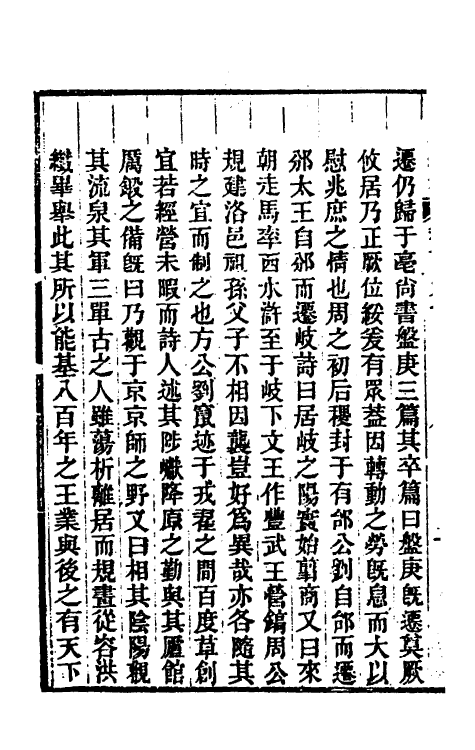 遷仍歸于亳尚書盤庚三篇其卒篇曰盤庚旣遷奠厥
攸居乃正厥位綏爰有眾葢因轉動之勞旣息而大以
慰兆庶之情也周之初后稷封于有邰公劉自邰而遷
邠太王自邠而遷岐詩曰居岐之陽實始翦商又曰來
朝走馬率西水滸至于岐下文王作豐武王營鎬周公
規建洛邑祖孫父子不相因襲豈好爲異哉亦各隨其
時之宜而制之也方公劉竄迹于戎翟之間百度草創
宜若經營未暇而詩人述其陟巘降原之勤與其廬館
厲鍛之備旣曰乃觀于京京師之野又曰相其陰陽觀
其流泉其軍三單古之人雖蕩析離居而規畫從容洪
纖畢舉此其所以能基八百年之王業與後之有天下